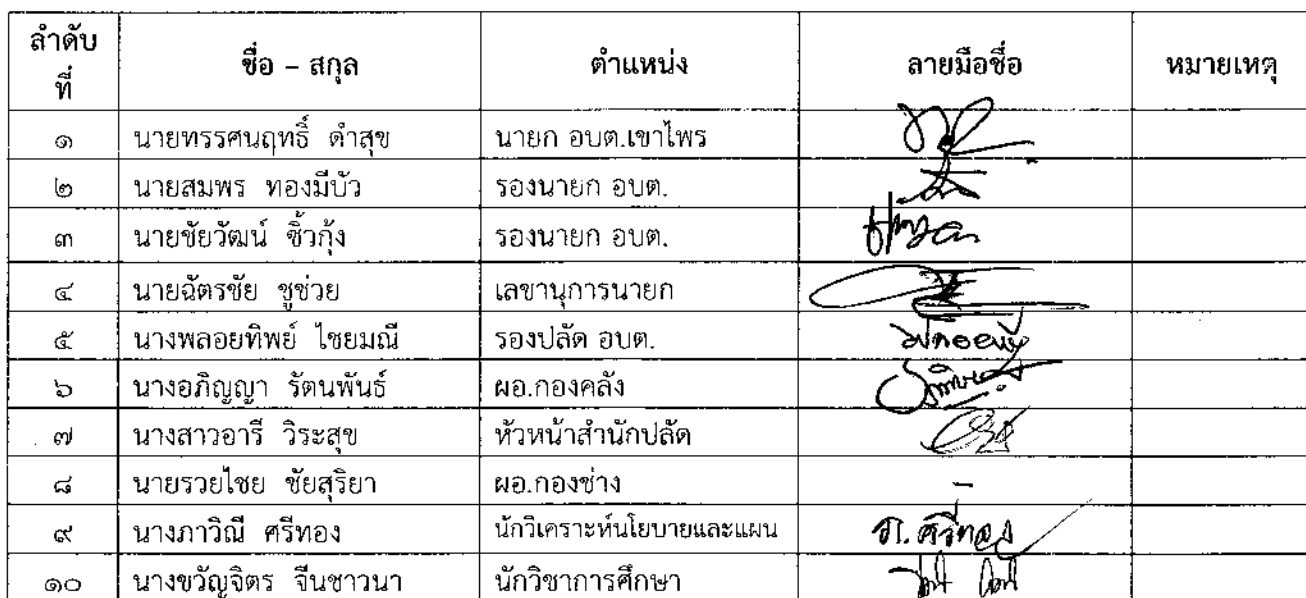 ลำดับที่ ชื่อ – สกุล ตำแหน่ง ลายมือชื่อ หมายเหตุ
๑ นายทรรศนฤทธิ์ ดำสุข นายก อบต.เขาไพร
๒ นายสมพร ทองมีบัว รองนายก อบต.
๓ นายชัยวัฒน์ ซิ้วกุ้ง รองนายก อบต.
๔ นายฉัตรชัย ชูช่วย เลขานุการนายก
๕ นางพลอยทิพย์ ไชยมณี รองปลัด อบต.
๖ นางอภิญญา รัตนพันธ์ ผอ.กองคลัง
๗ นางสาวอารี วิระสุข หัวหน้าสำนักปลัด
๘ นายรวยไชย ชัยสุริยา ผอ.กองช่าง -
๙ นางภาวิณี ศรีทอง นักวิเคราะห์นโยบายและแผน ภ. ศรีทอง
๑๐ นางขวัญจิตร จีนชาวนา นักวิชาการศึกษา